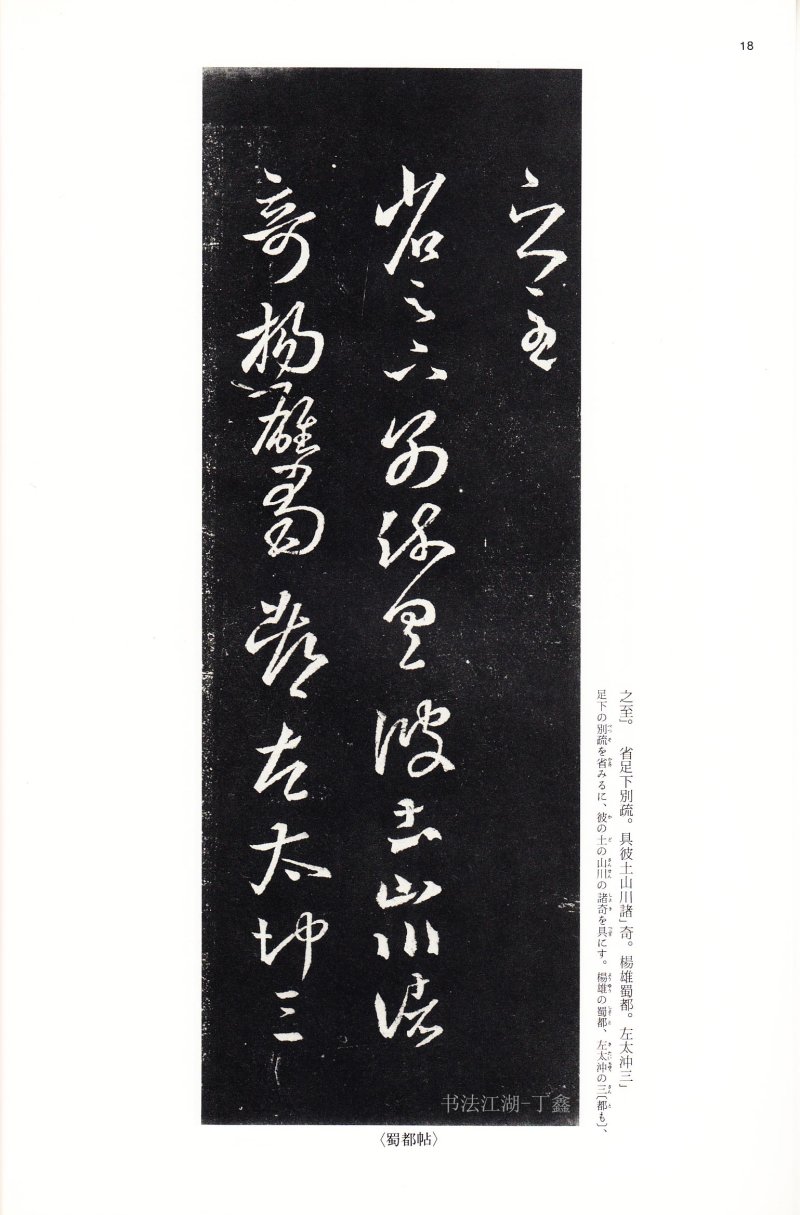 18
之至
省足下別疏具彼土山川諸
奇楊雄蜀都左太沖三
之至」。　省足下別疏。具彼土山川諸」奇。楊雄蜀都。左太沖三」
足下の別疏を省みるに、彼の土の山川の諸奇を具にす。楊雄の蜀都、左太沖の三〔都も〕、
书法江湖-丁鑫
〈蜀都帖〉